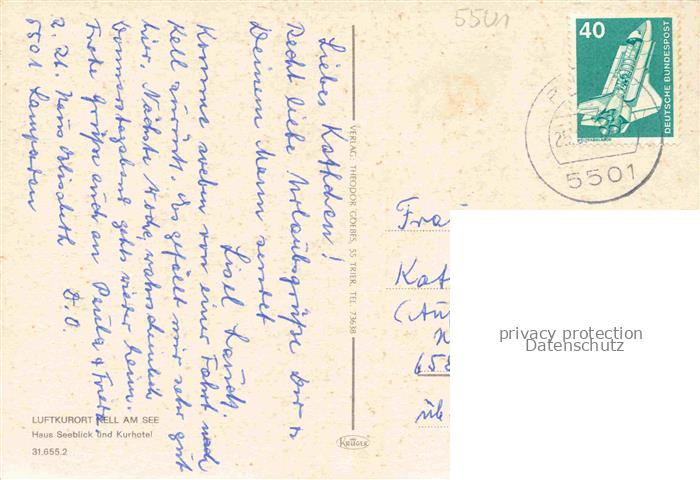 5501
40
DEUTSCHE BUNDESPOST
5501
Liebes Kathchen!
Recht liebe Urlaubsgrüße Dir u
Deinem Mann sendet
Lisel
Komme soeben von einer Fahrt nach
Kell zurück. Es gefällt mir sehr gut
hier. Nächste Woche, wahrscheinlich
Donnerstagabend geht's wieder heim.
Frohe Grüße auch an Paula & Frieda.
z. Zt. Haus Elisabeth D. O.
5501 Lampaden
VERLAG: THEODOR GOEBES, 55 TRIER, TEL. 73638
KRÜGER
Frau
Kat
(Au
658
üb
privacy protection
Datenschutz
LUFTKURORT KELL AM SEE
Haus Seeblick und Kurhotel
31.655.2